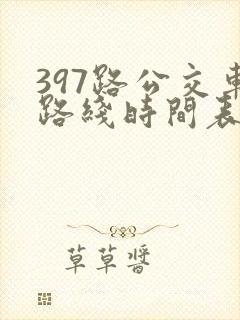 397路公交車
路綫時間表
草草醬